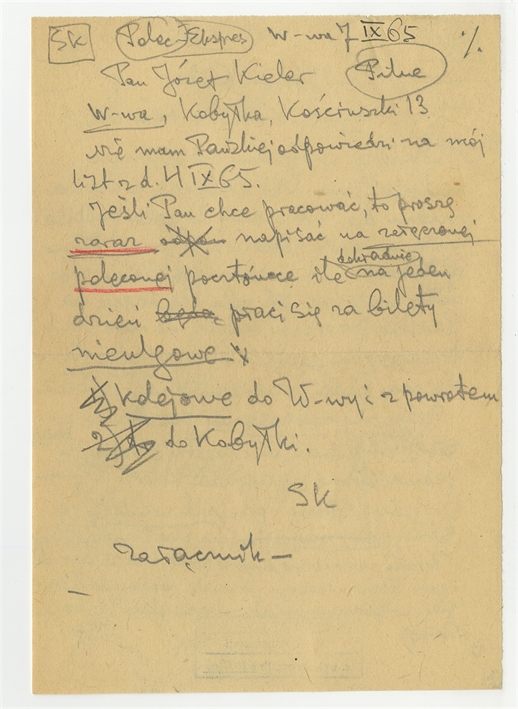 SK Polec-Ekspres W-wa 7 IX 65 ./.
Pan Józef Kieler Pilne
W-wa, Kobyłka, Kościuszki 13
nie mam Pańskiej odpowiedzi na mój
list z d. 4 IX 65.
Jeśli Pan chce pracować, to proszę
zaraz napisać na załączonej
poleconej pocztówce ile dokładnie na jeden
dzień będą płaci się za bilety
nieulgowe
kolejowe do W-wy i z powrotem
do Kobyłki.
SK
załącznik —
—